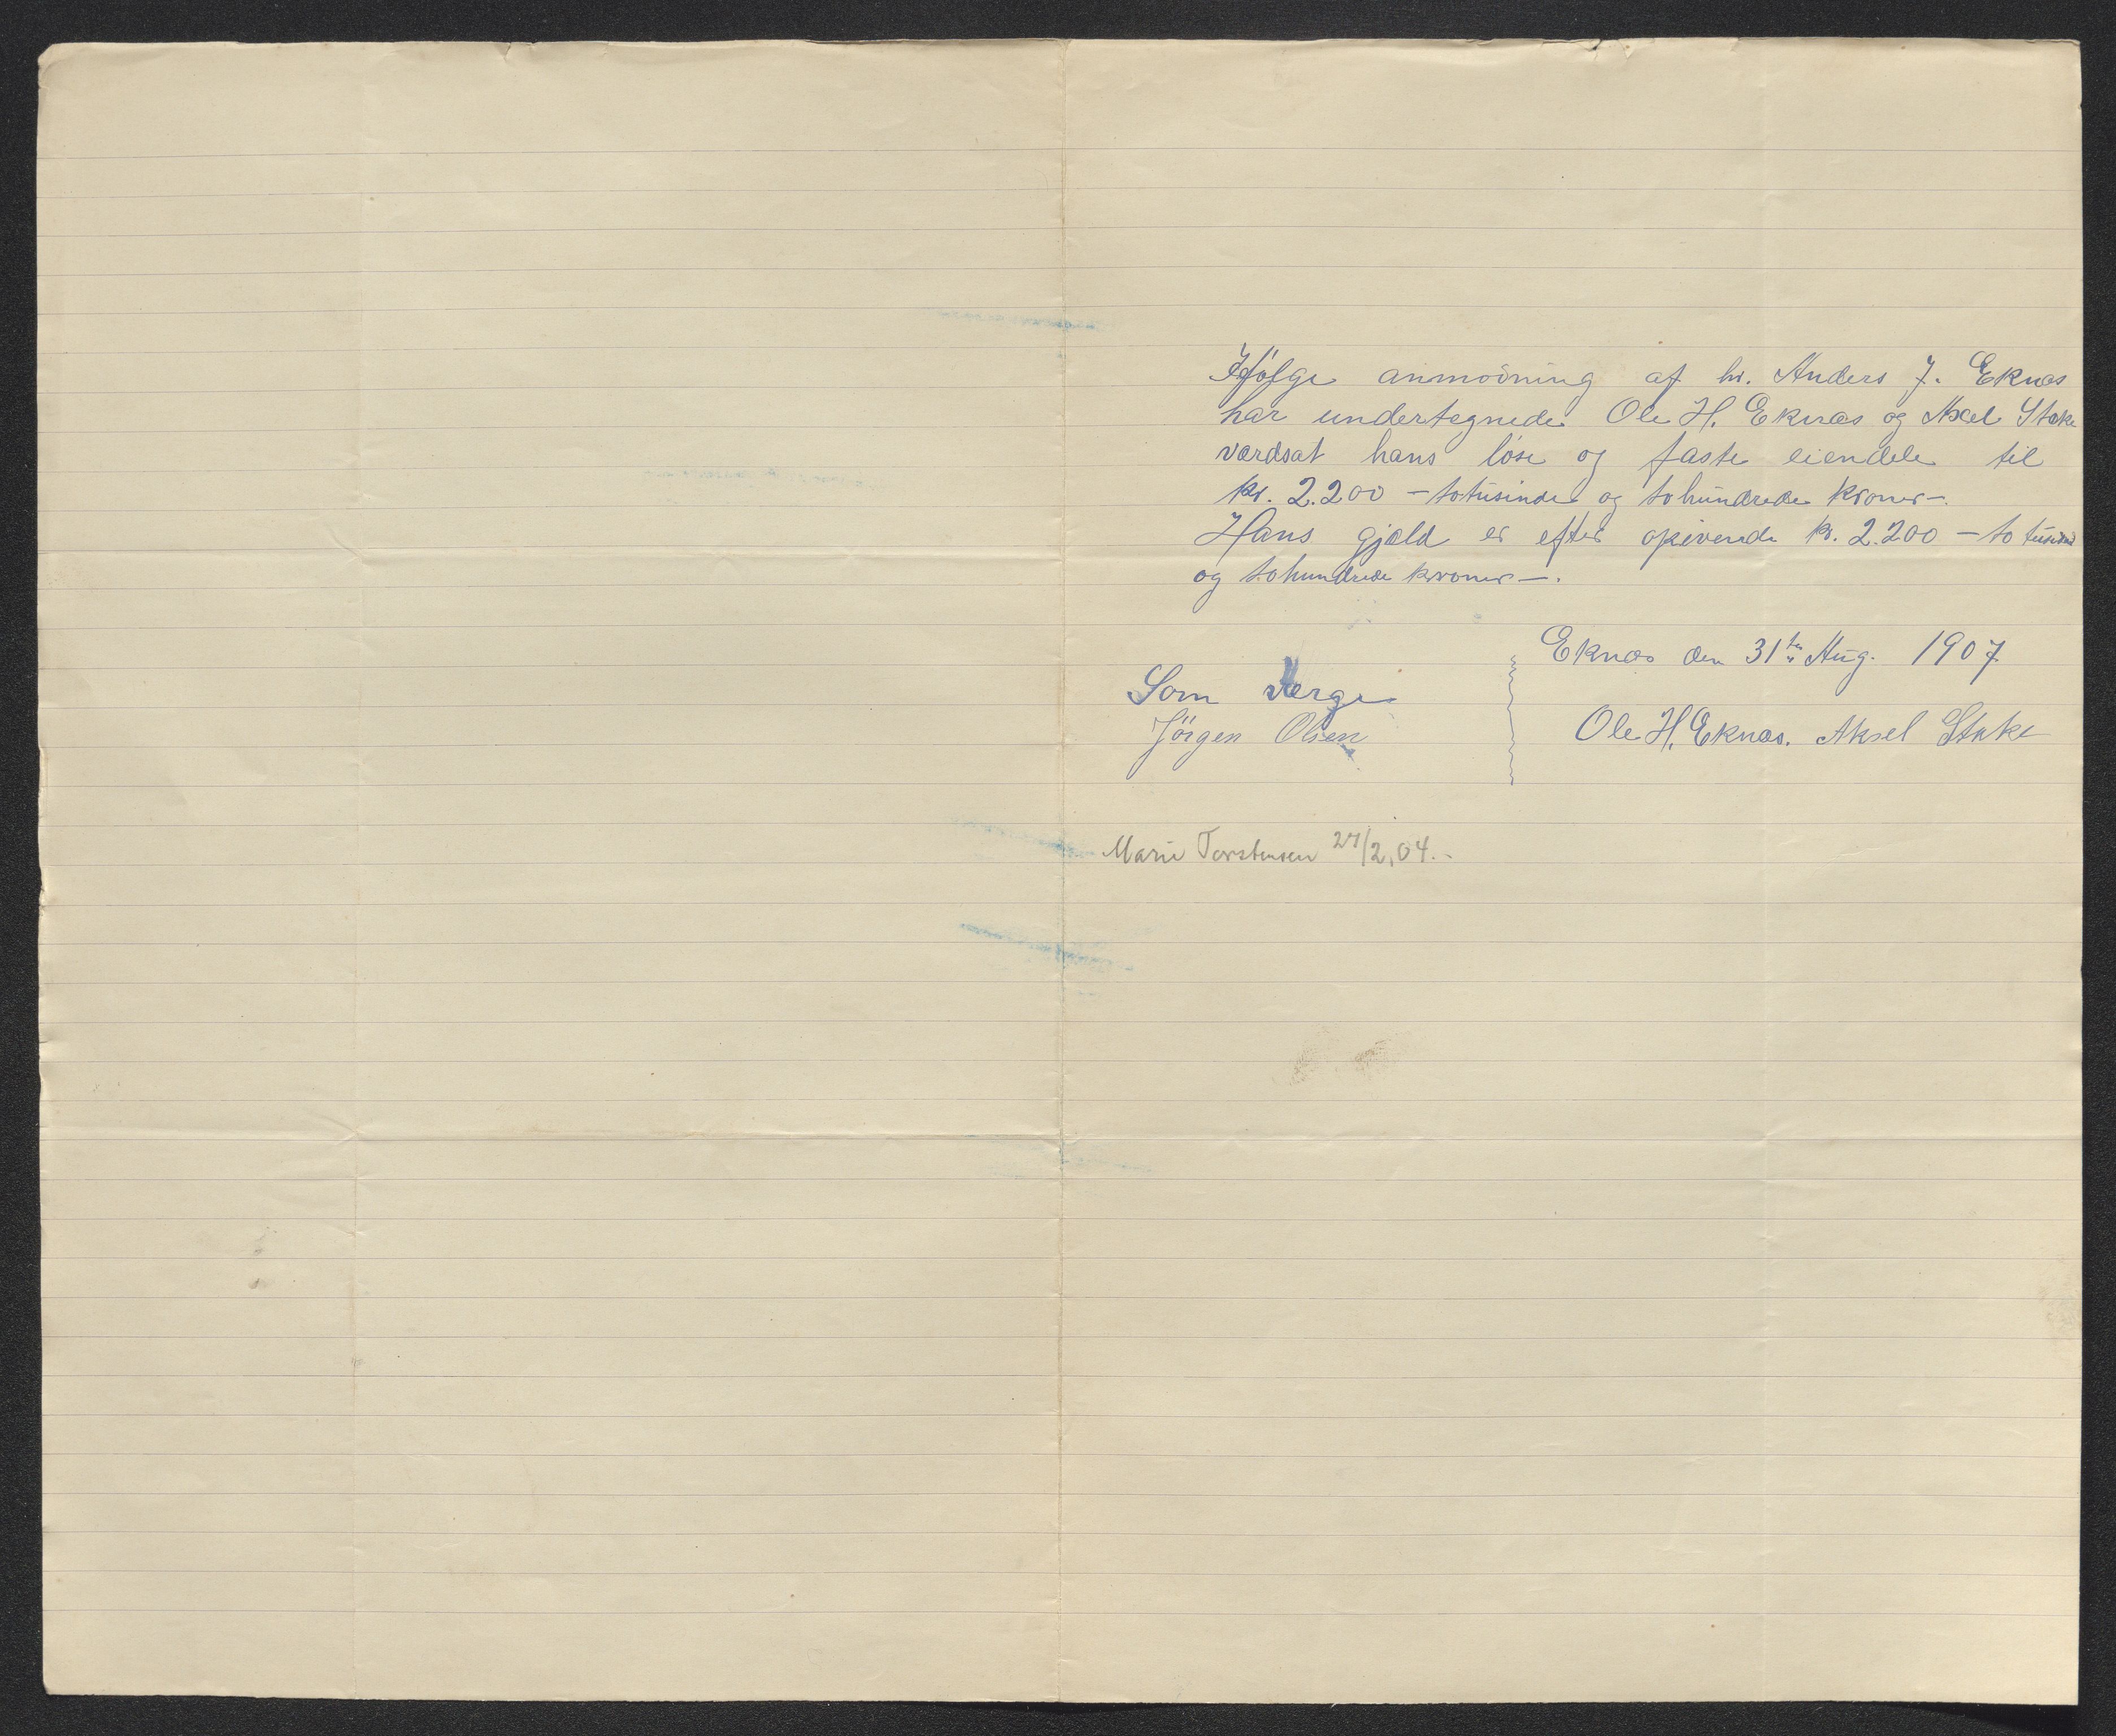 Ifølge anmodning af hr. Anders J. Eknæs
har undertegnede Ole H. Eknæs og Axel Stake
værdsat hans løse og faste eiendele til
kr. 2.200 – totusinde og tohundrede kroner –.
Hans gjæld er efter opivende kr. 2.200 – to tusinde
og tohundrede kroner –.
Eknæs den 31te Aug. 1907
Som værge
Jörgen Olsen
Ole H. Eknæs. Aksel Stake
Marie Torstensen 27/2,04.